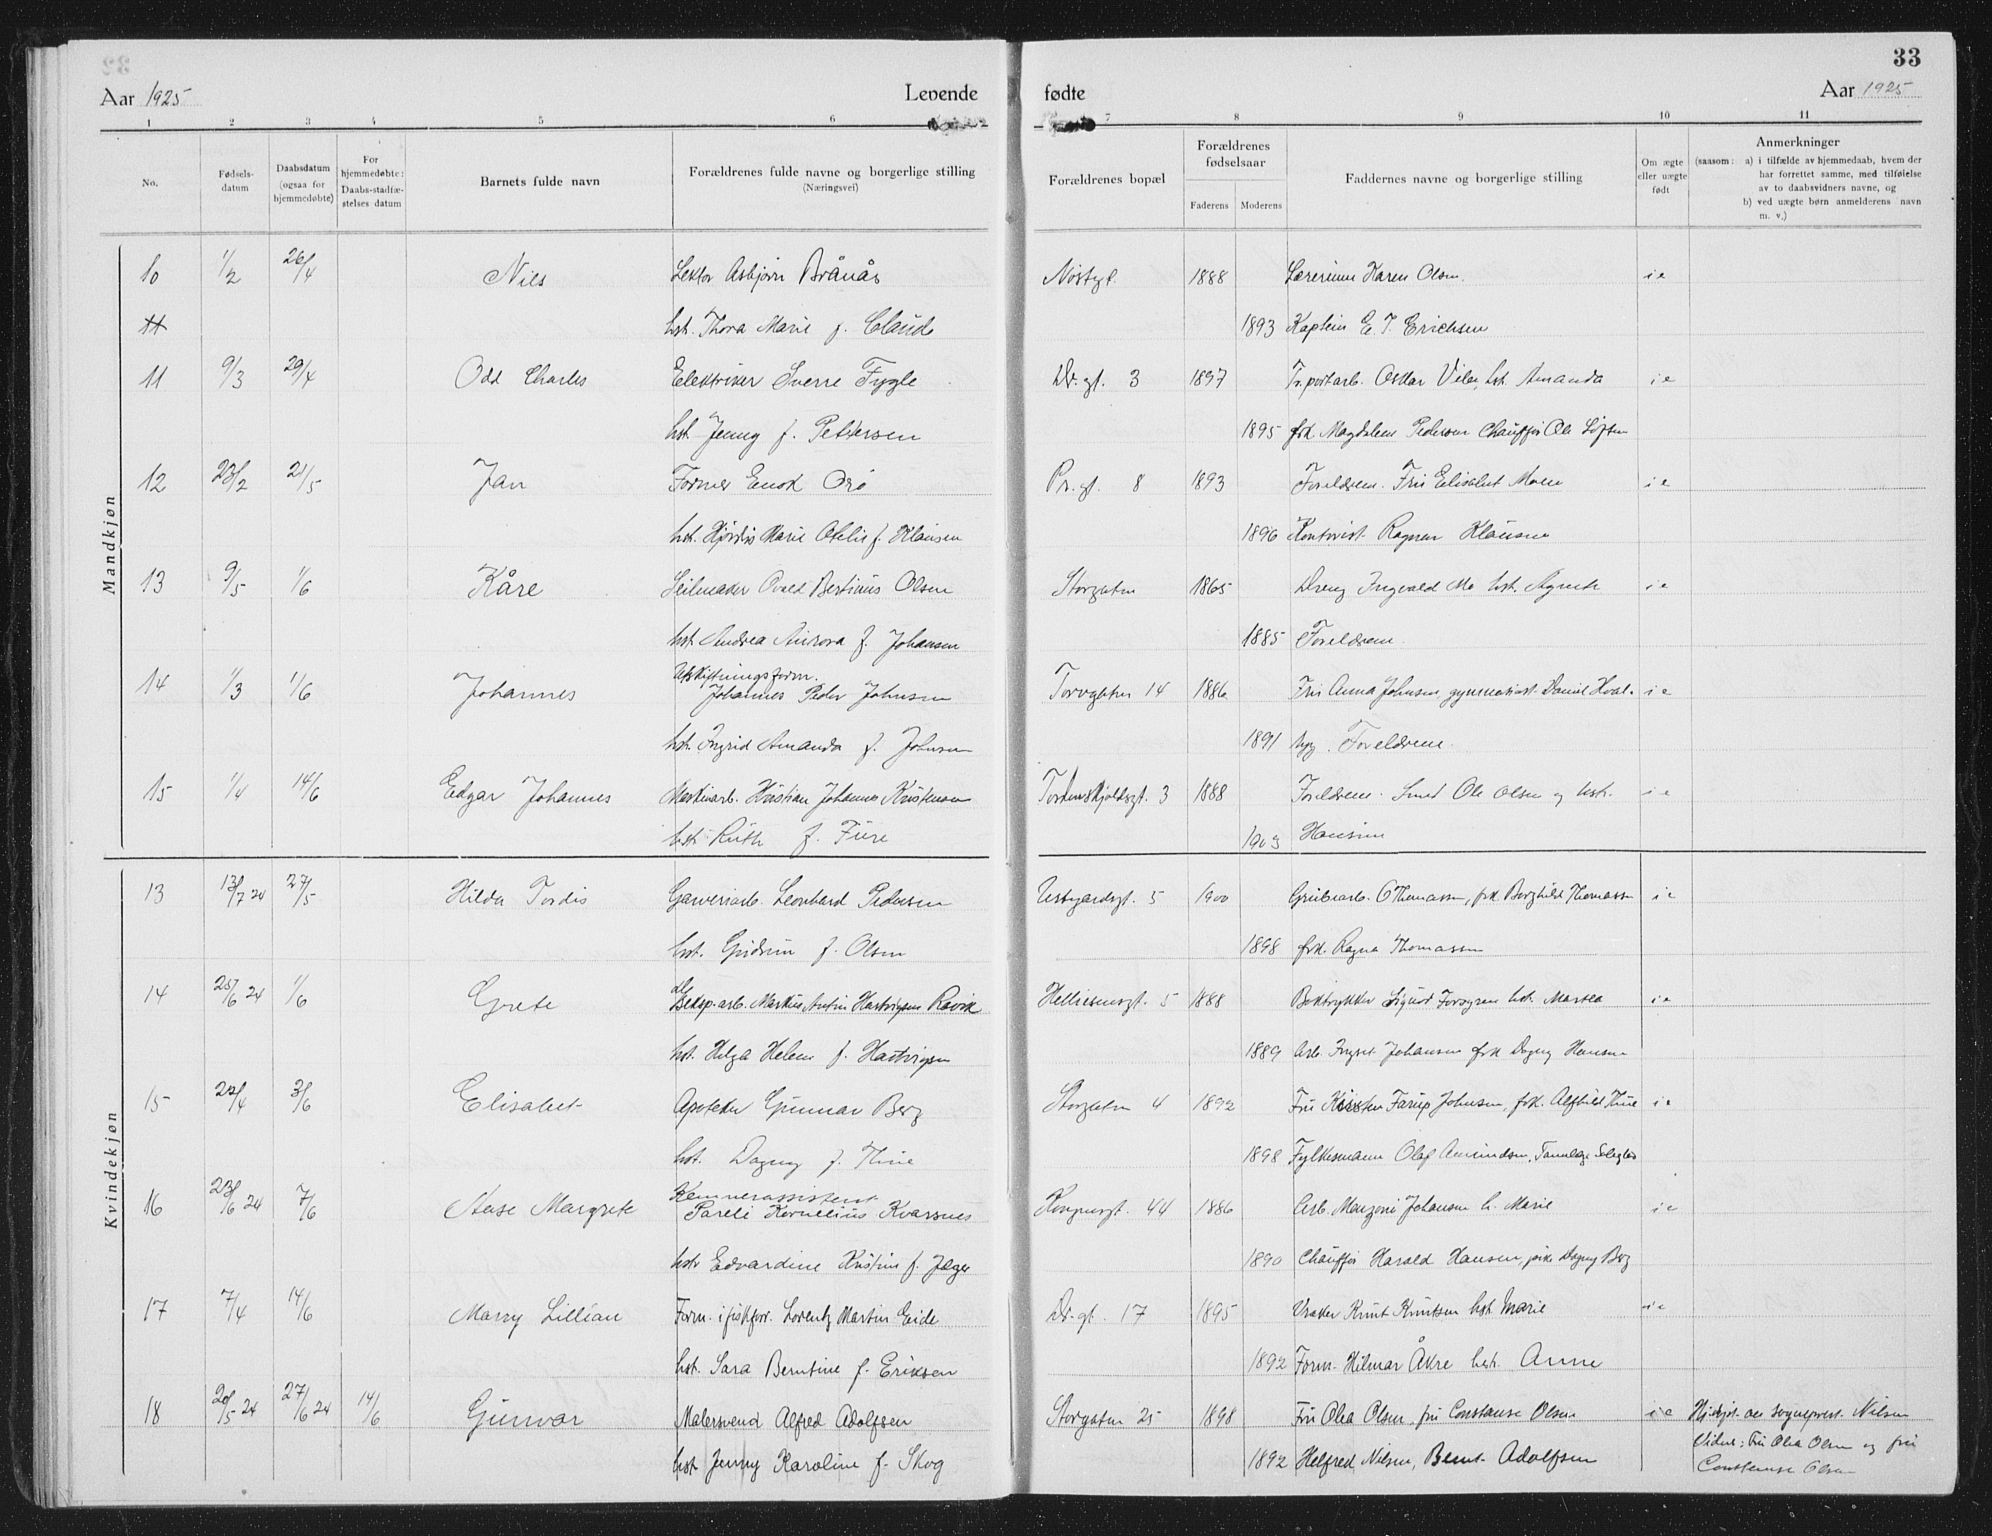 33
Aar 1925
Levende
fødte
Aar 1925
1 2 3 4 5 6 7 8 9 10 11
No.
Fødsels-
datum
Daabsdatum
(ogsaa for
hjemmedøbte)
For
hjemmedøbte:
Daabs-stadfæ-
stelses datum
Barnets fulde navn
Forældrenes fulde navne og borgerlige stilling
(Næringsvei)
Forældrenes bopæl
Forældrenes
fødselsaar
Faderens Moderens
Faddernes navne og borgerlige stilling
Om ægte
eller uægte
født
Anmerkninger
(saasom: a) i tilfælde av hjemmedaab, hvem der
har forrettet samme, med tilføielse
av to daabsvidners navne, og
b) ved uægte børn anmelderens navn
m. v.)
Mandkjøn
10 1/2 26/4 Nils Lektor Asbjørn Brånås Nøstgt. 1888 Lærerinne Karen Olsen. i e
11 hst. Thora Marie f. Claude 1893 Kaptein E. T. Erichsen
11 9/3 29/4 Odd Charles Elektriker Sverre Fygle Dr. gt. 3 1897 Tr.portarb. Oskar Vibe, hst. Amanda i e
hst. Jenny f. Pettersen 1895 frk. Magdalene Pedersen Chauffør Ole
12 23/2 21/5 Jan Former Enok Orø Pr. gt. 8 1893 Foreldrene. Fru Elisabet Moen i e
hst. Hjørdis Marie Otelie f. Klausen 1896 Kontorist Ragnar Klausen
13 9/5 1/6 Kåre Seilmaker Ovald Bertinus Olsen Storgaten 1865 Dreng Ingvald Mo hst. Agnete i e
hst. Andrea Aurora f. Johansen 1885 Foreldrene.
14 1/3 1/6 Johannes Utskiftningsform. Johannes Peder Johnsen Torvgaten 14 1886 Fru Anna Johnsen, gymnasiast Daniel Hval- i e
hst. Ingrid Amanda f. Johnsen 1891 byg. Foreldrene.
15 1/4 14/6 Edgar Johannes Maskinarb. Kristian Johannes Kristensen Tordenskjoldsgt. 3 1888 Foreldrene. Smed Ole Olsen og hst. i e
hst. Ruth f. Fure 1903 Hansine
Kvindekjøn
13 13/7 24 27/5 Hilda Tordis Garveriarb. Leonhard Pedersen 5 1900 Grubearb. O Thomassen, frk. Borghild Thomassen i e
hst. Gudrun f. Olsen 1898 frk. Ragna Thomassen
14 25/6 24 1/6 Grete Eksp.arb. Markus Antin Hartvigsen Røvik Helliesensgt. 5 1888 Boktrykker Sigurd hst. Martea i e
hst. Helga Helene f. Hartvigsen 1889 Arb. Johansen frk Dagny Hansen
15 22/4 3/6 Elisabet Apoteker Gunnar Berg Storgaten 4 1892 Fru Kirsten Farup Johnsen, frk. Alfhild Thue i e
hst. Dagny f. Thue 1898 Fylkesmann Olaf Amundsen, Tannlæge
16 23/6 24 7/6 Aase Margrete Kemnerassistent Pareli Kornelius Kvassnes Kongensgt. 44 1886 Arb. Johansen h. Marie i e
hstr Edvardine Kristine f. Jæger 1890 Chauffør Harald Hansen, pike Dagny Berg
17 7/4 14/6 Marry Lillian Form. i fiskforr. Lorentz Martin Eide Dr. gt. 17 1895 Vraker Knut Knutsen hst. Marie i e
hst. Sara Berntine f. Eriksen 1892 Form. Hilmar Åkre hst. Anne
18 20/5 24 27/6 24 14/6 Gunvor Malersvend Alfred Adolfsen Storgaten 25 1898 Fru Olea Olsen, fru Constanse Olsen i e Hj.døpt av sogneprest Nilsen
hst. Jenny Karoline f. Skog 1892 Helfred Nilsen, Bernt Adolfsen Vidner: Fru Olea Olsen og fru
Constanse Olsen